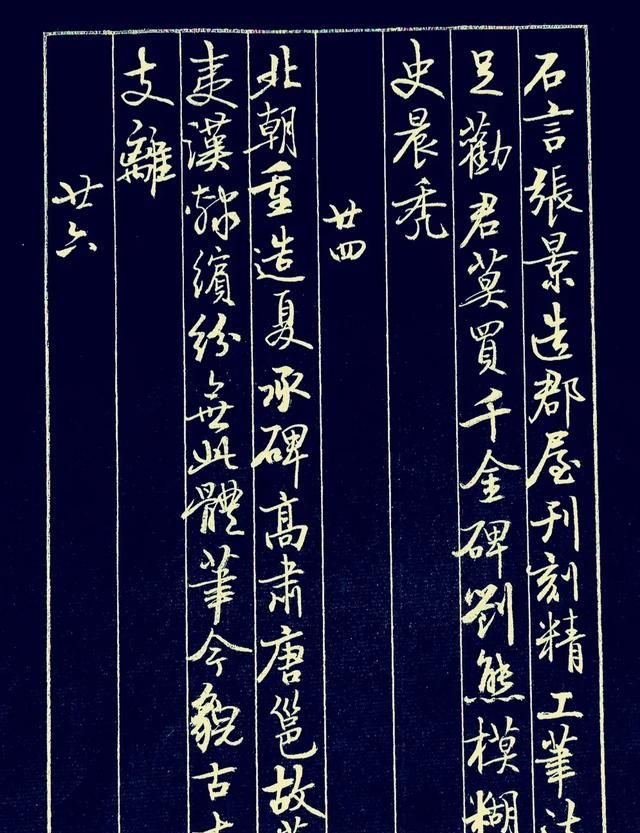 石言張景造郡屋刊刻精工筆法
足勸君莫買千金碑劉熊模糊
史晨禿
廿四
北朝重造夏承碑高肅唐邕故
夷漢隸繽紛無此體筆今貌古
支離
廿六